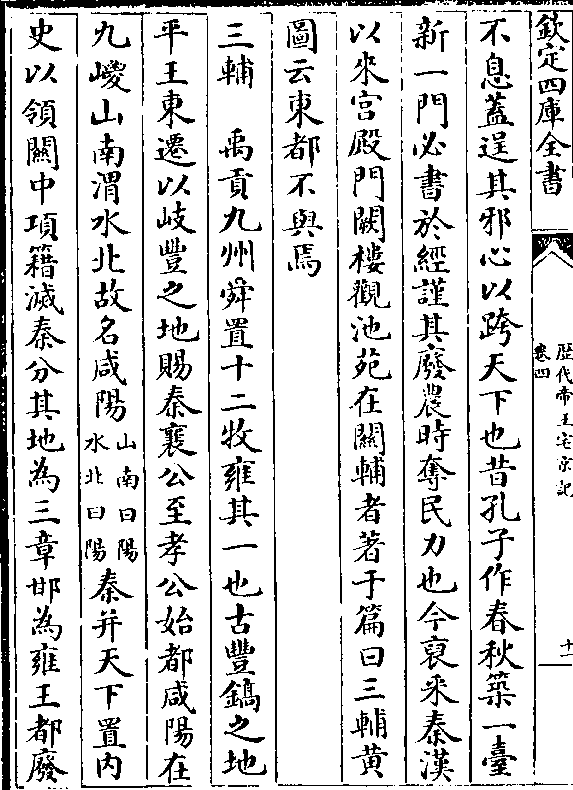 欽定四庫全書
歴代帝王宅京記
卷四
十一
不息蓋逞其邪心以跨天下也昔孔子作春秋築一臺
新一門必書於經謹其廢農時奪民力也今裒采秦漢
以來宮殿門闕樓觀池苑在關輔者著于篇曰三輔黃
圖云東都不與焉
三輔　禹貢九州舜置十二牧雍其一也古豐鎬之地
平王東遷以岐豐之地賜秦襄公至孝公始都咸陽在
九嵕山南渭水北故名咸陽山南曰陽水北曰陽秦并天下置内
史以領關中項籍滅秦分其地為三章邯為雍王都廢